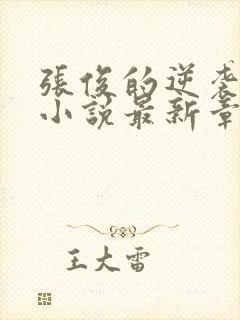 張俊的逆袭
小說最新章
王大雷